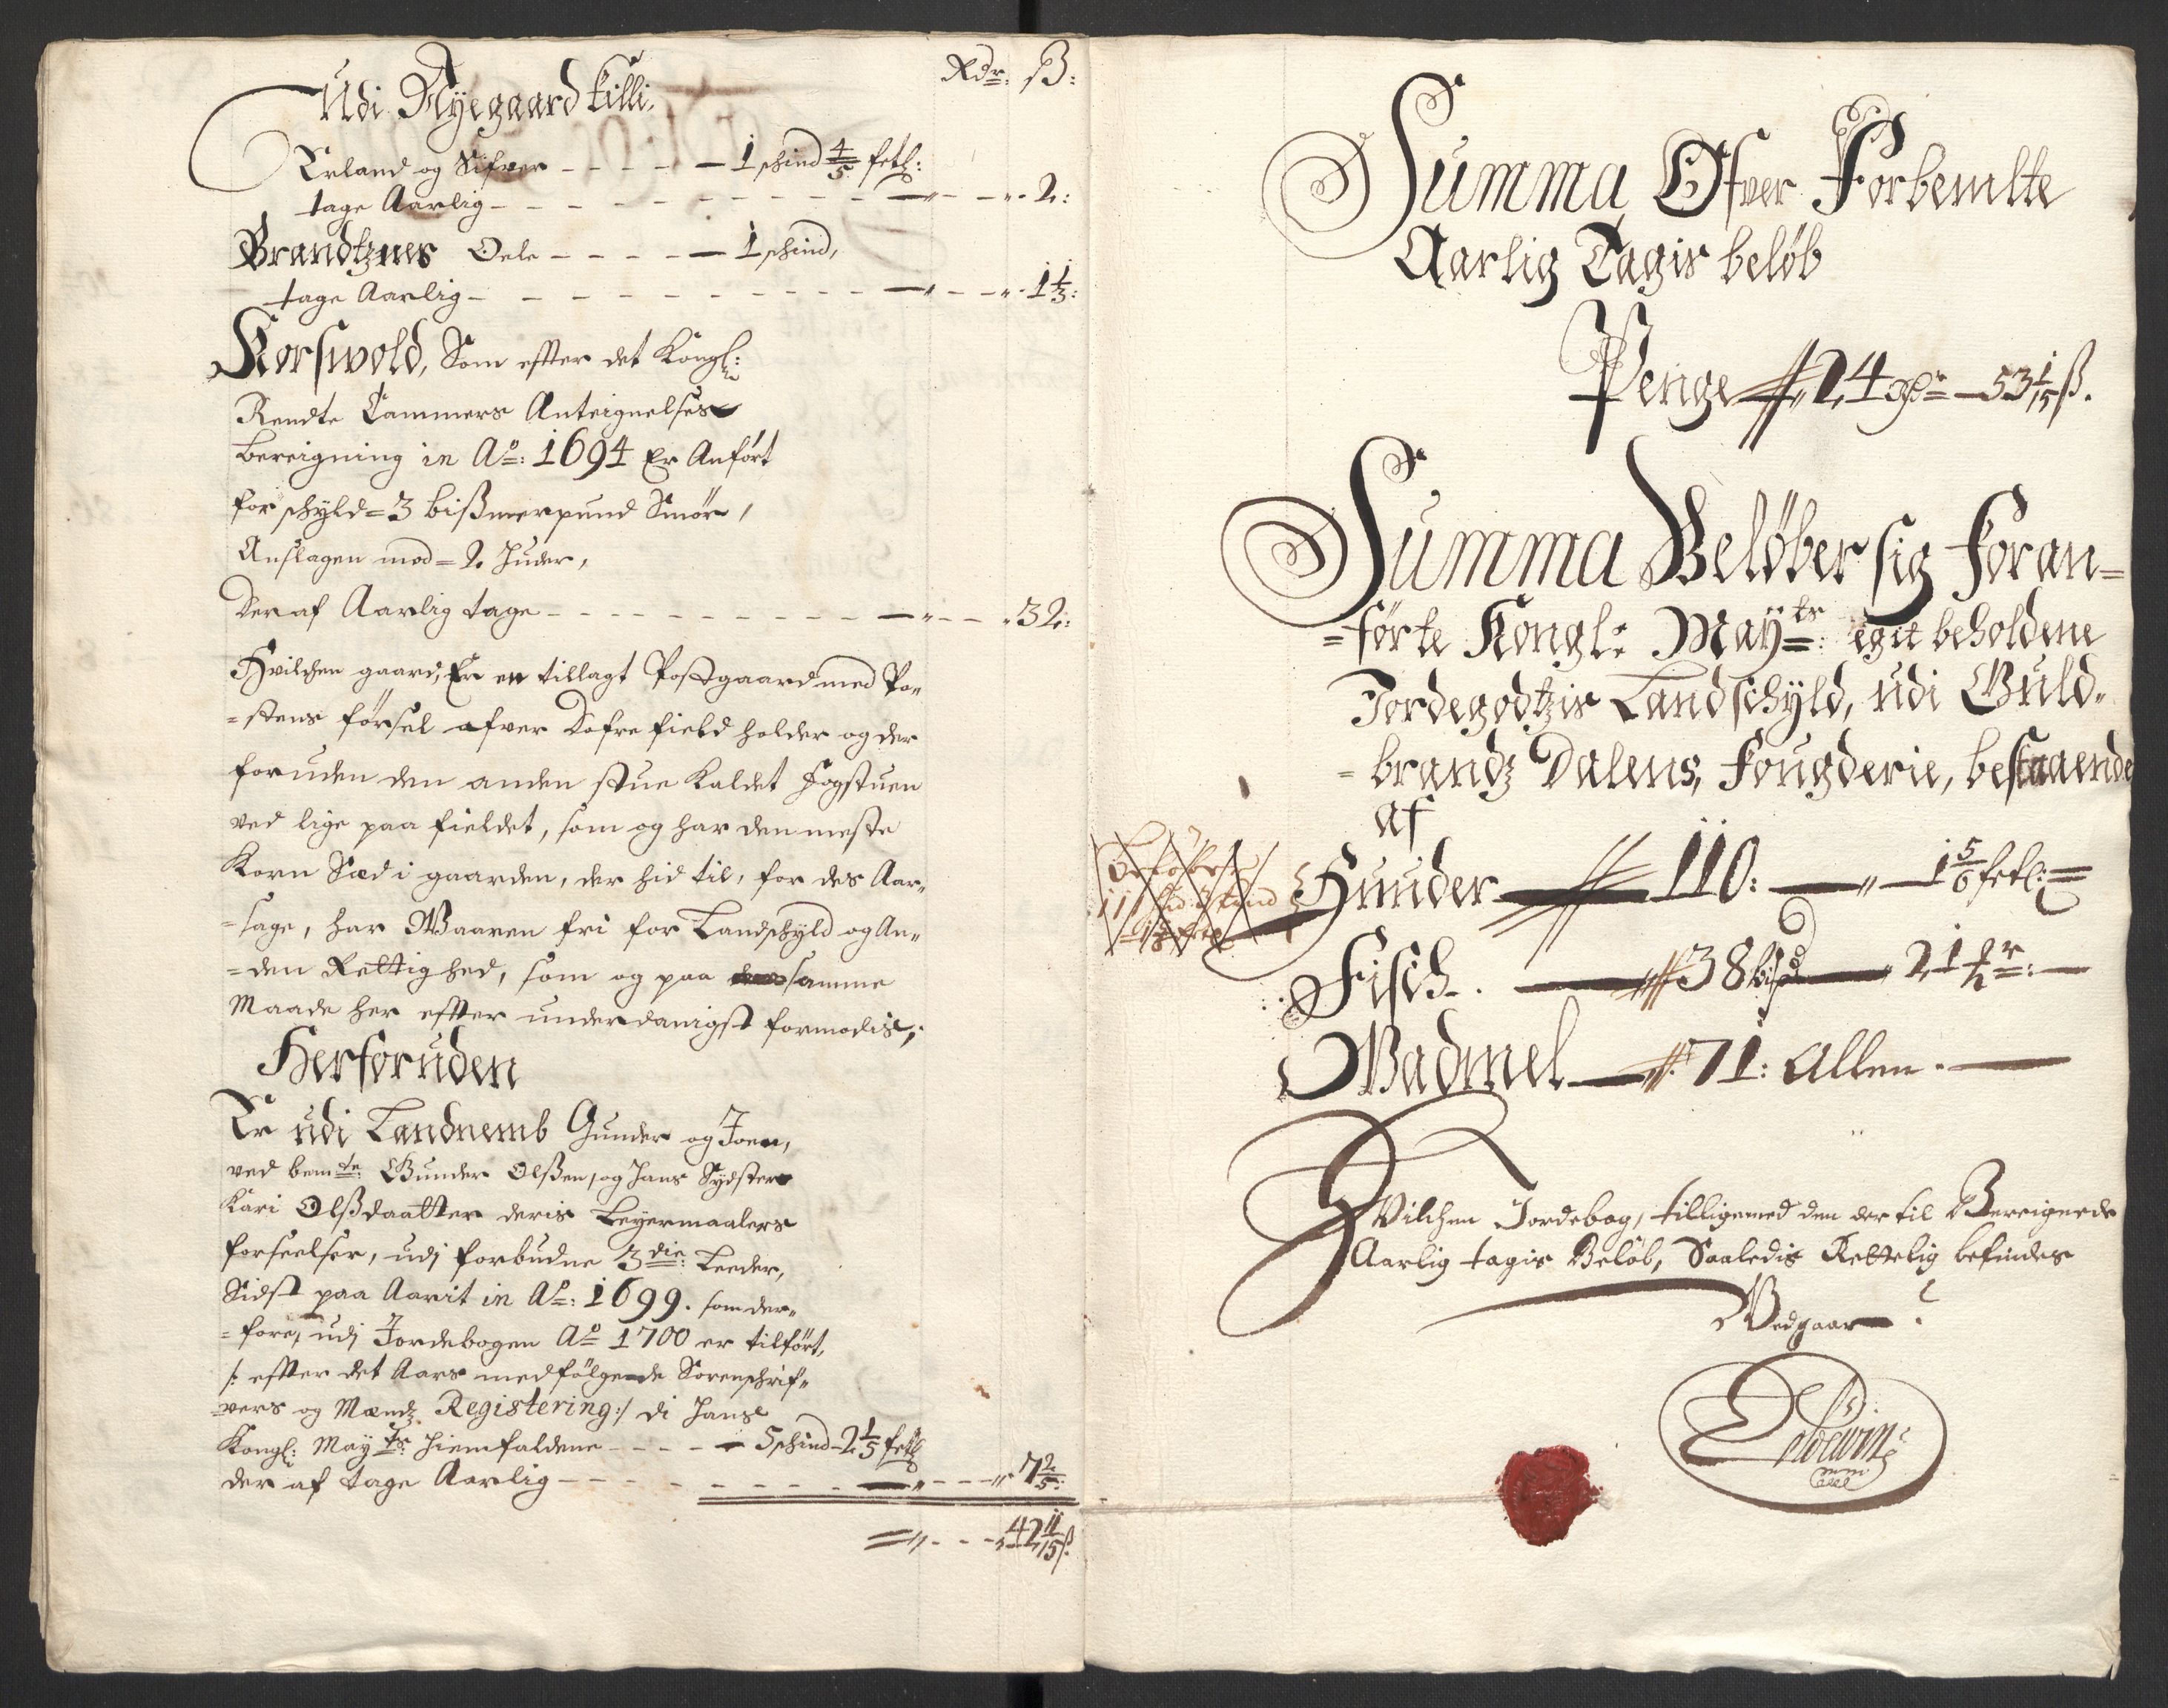 Rdr: ß:
Udi Nyegaard tilli.
Erland og Sifver - - - - - 1 schind 4/5 fetl:
tage Aarlig - - - - - - - - - - - „ - - „ - 2:
Brandtznes Oele - - - - - 1 schind,
tage Aarlig - - - - - - - - - - - „ - - „ - 1 1/3:
Korswold, Som effter det Kongl:
Rendte Cammers Anteignelses
bereigning in Ao: 1694 Er Anført
for schyld = 3 bißmerpund Smør,
Anslagen mod = 2. Huder,
Deraf Aarlig tage - - - - - - - - - - „ - - „ 32:
Hvilchen gaard, Er en tillagt Postgaard med Po-
=stens førsel ofver Dofrefield holder og der
foruden den anden stue kaldet Fogstuen
ved lige paa fieldet, som og har den meste
Korn Sæd i gaarden, der hid til, for des Aar-
=sage, har Waaren fri for Landschyld og An-
=den Rettighed, som og paa samme
Maade her effter underdanigst formodis,
Herforuden
Er udi Landnemb Gunder og Joen,
ved bemte: Gunder Olßen, og hans Sydster
Kari Olßdaatter deris Leyermaalers
forseelser, udj forbudne 3die: Leeder,
Sidst paa Aarit in Ao: 1699. som der-
=fore, udj Jordebogen Ao 1700 er tilført,
/: effter det Aars medfølgende Sorenschrif-
=vers og Mændz Registering :/ di hans
Kongl: Mayts: hiemfaldene - - - - 5 schind - 2 1/5 fetl
der af tage Aarlig - - - - - - - - - - „ - - - „ 7 2/5:
= „ - - - 42 11/15 ß.
Summa Ofver Forbemlte
Aarlig Tagis beløb
Penge 24 Rdr - 53 1/15 ß.
Summa Beløber sig foran=
=førte Kongl: Mayts: egit beholdene
Jordegodtzis Landschyld, udi Guld-
=brandz Dalens, Fougderie, bestaaende
af
Huuder 110: „ 1 5/6 fetl: =
Fisch. 38 bißd 21 1/2 r:
Wadmel 71: Allen.
Hvilchen Jordebog, tilligemed den der til Bereignede
Aarlig tagis Beløb, Saaledis Rettelig befindes
Vedgaar